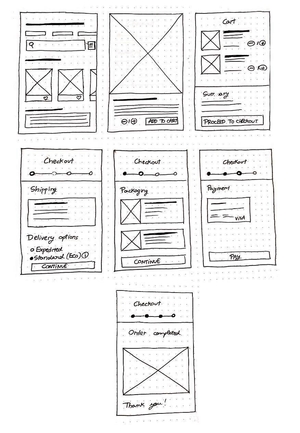 ADD TO CART
Cart
PROCEED TO CHECKOUT
Checkout
Shipping
Delivery options
Expedited
Standard (Eco)
CONTINUE
Checkout
Packaging
CONTINUE
Checkout
Payment
VISA
PAY
Checkout
Order completed
Thank you!